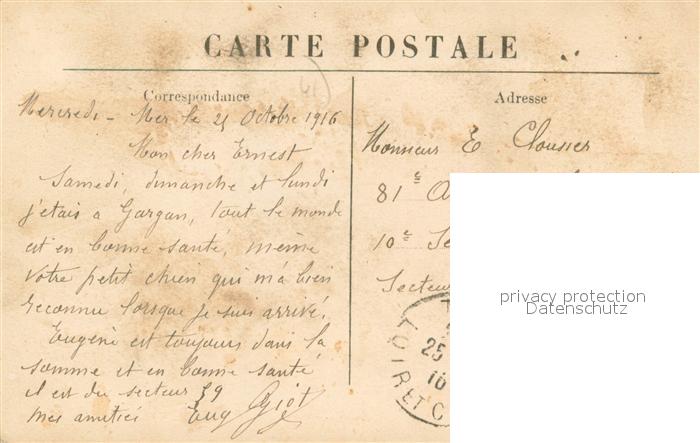 CARTE POSTALE
Correspondance
Mercredi - Mer le 25 Octobre 1916
Mon cher Ernest
Samedi, dimanche et lundi
j'etais a Gargan, tout le monde
est en bonne santé, même
votre petit chien qui m'a bien
reconnu lorsque je suis arrivé.
Eugène est toujours dans la
somme et en bonne santé
il est du secteur 39
mes amitiés Eug Gyiot
Adresse
Monsieur E Clousier
81e
10e Se
Secteur
privacy protection
Datenschutz
25
10
RET C